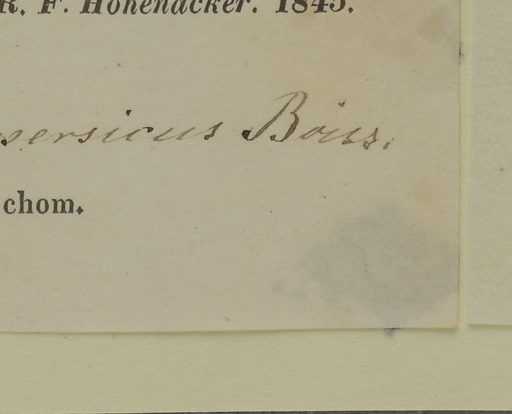 R. F. Hohenacker. 1845.
persicus Boiss.
chom.